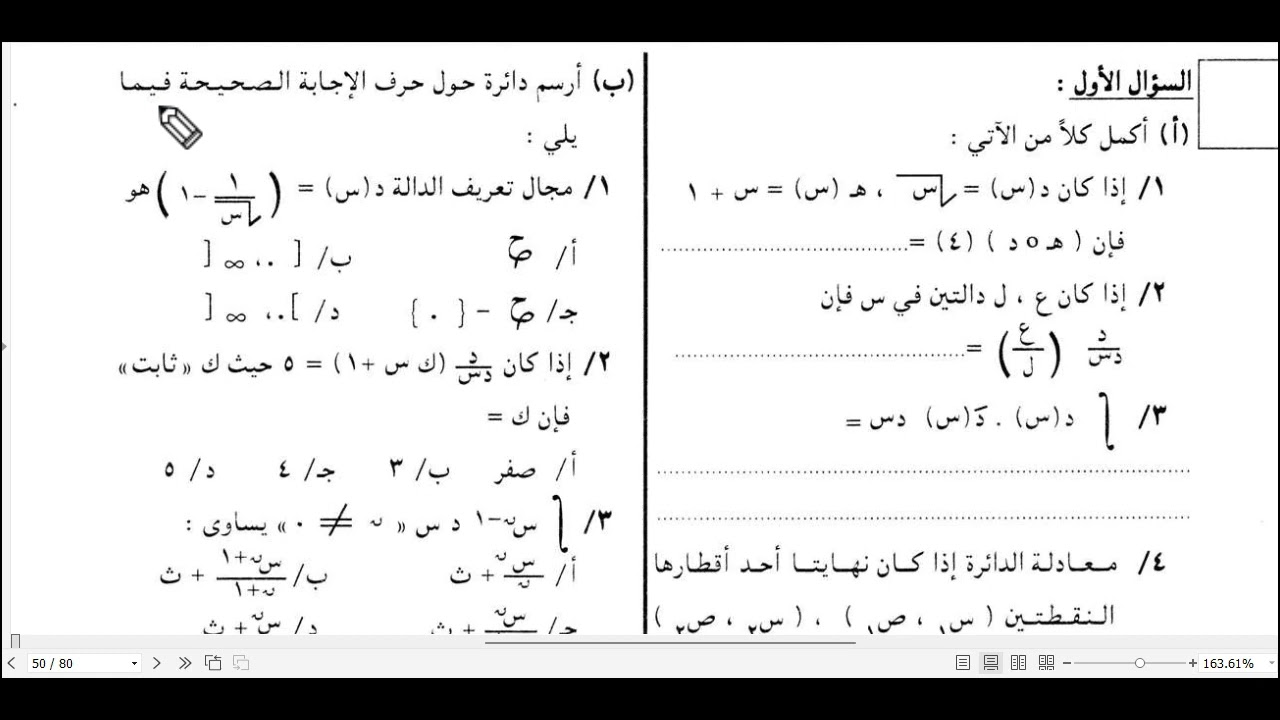 السؤال الأول :
(أ) أكمل كلاً من الآتي :
١/ إذا كان د(س) = √س ، هـ (س) = س + ١
فإن ( هـ o د ) (٤) = ........................
٢/ إذا كان ع ، ل دالتين في س فإن
د/دس (ع/ل) = ........................
٣/ ∫ د(س) . دَ(س) دس =
........................
........................
٤/ معادلة الدائرة إذا كان نهايتا أحد أقطارها
النقطتين ( س١ ، ص١ ) ، ( س٢ ، ص٢ )
(ب) أرسم دائرة حول حرف الإجابة الصحيحة فيما
يلي :
١/ مجال تعريف الدالة د(س) = (١/√س −١) هو
أ/ ح ب/ [ ٠، ∞ [
جـ/ ح − { ٠ } د/ ]٠، ∞ [
٢/ إذا كان د/دس (ك س +١) = ٥ حيث ك «ثابت»
فإن ك =
أ/ صفر ب/ ٣ جـ/ ٤ د/ ٥
٣/ ∫ س^(ن−١) د س « ن ≠ ٠ » يساوى :
أ/ س^ن/ن + ث ب/ س^(ن+١)/(ن+١) + ث
جـ/ س^ن + ث د/ س^ن + ث
50 / 80
163.61%